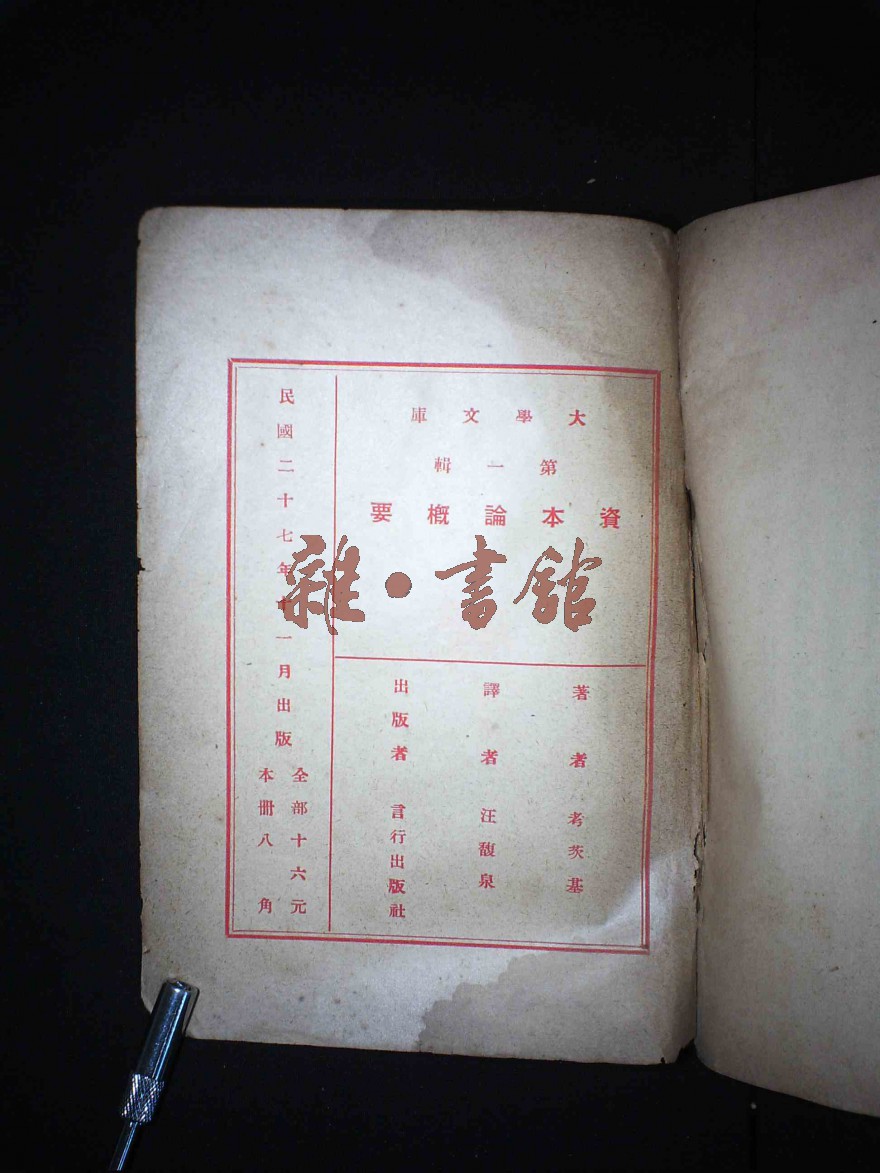 大學文庫
第一輯
資本論概要
著者 考茨基
譯者 汪馥泉
出版者 言行出版社
民國二十七年十一月出版
全部十六元
本冊八角
雜·書館